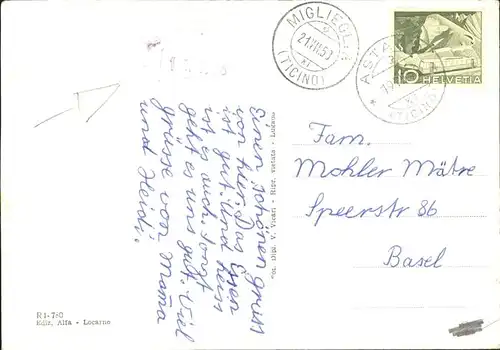 MIGLIEGLIA
21.VII.53
XI
(TICINO)
ASTA
(TICINO)
10
HELVETIA
Einen schönen gruss
von hier. Das Essen
ist gut. Und heiss
ist es auch. Sonst
geht es uns gut. Viel
grüsse von Mama
und Heidi.
Fot. Dipl. V. Vicari - Ripr. vietata - Locarno
Fam.
Mohler Mätre
Speerstr 86
Basel
R 1-780
Ediz. Alfa - Locarno